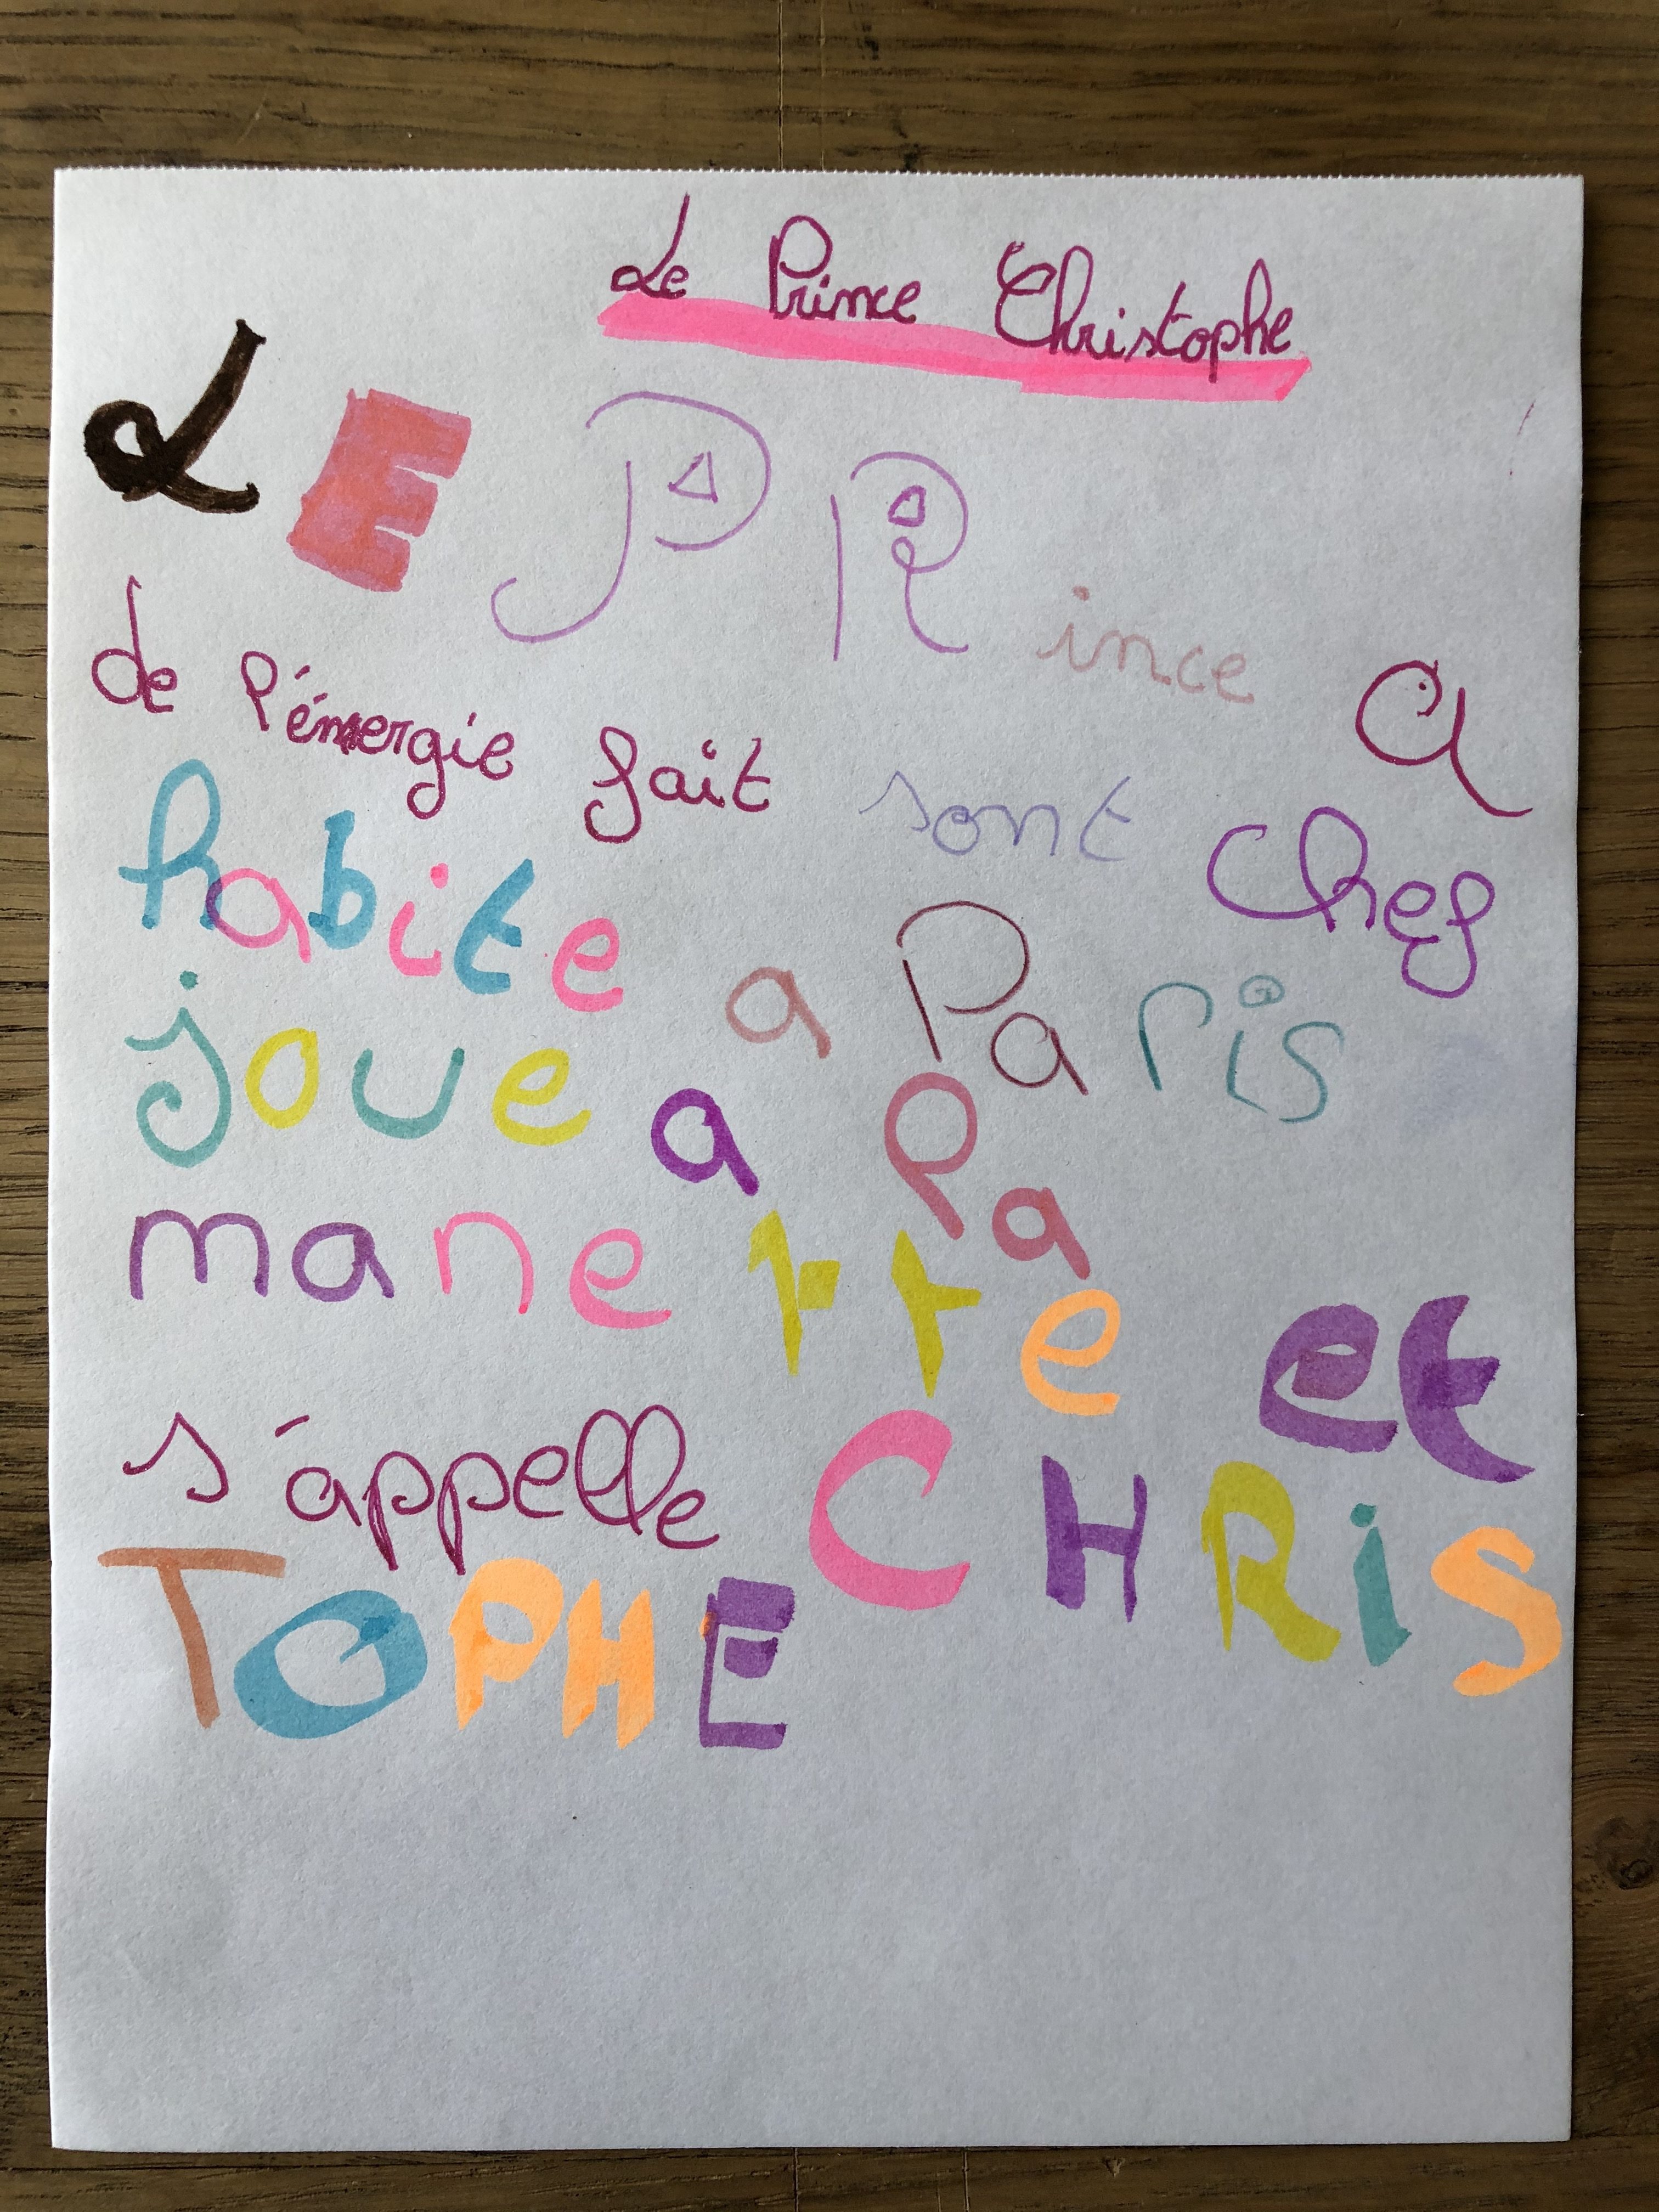 Le Prince Christophe
LE PRince a
de l'énergie fait sont chef
habite a Paris
joue a la
manette et
s'appelle CHRiS
TOPHE